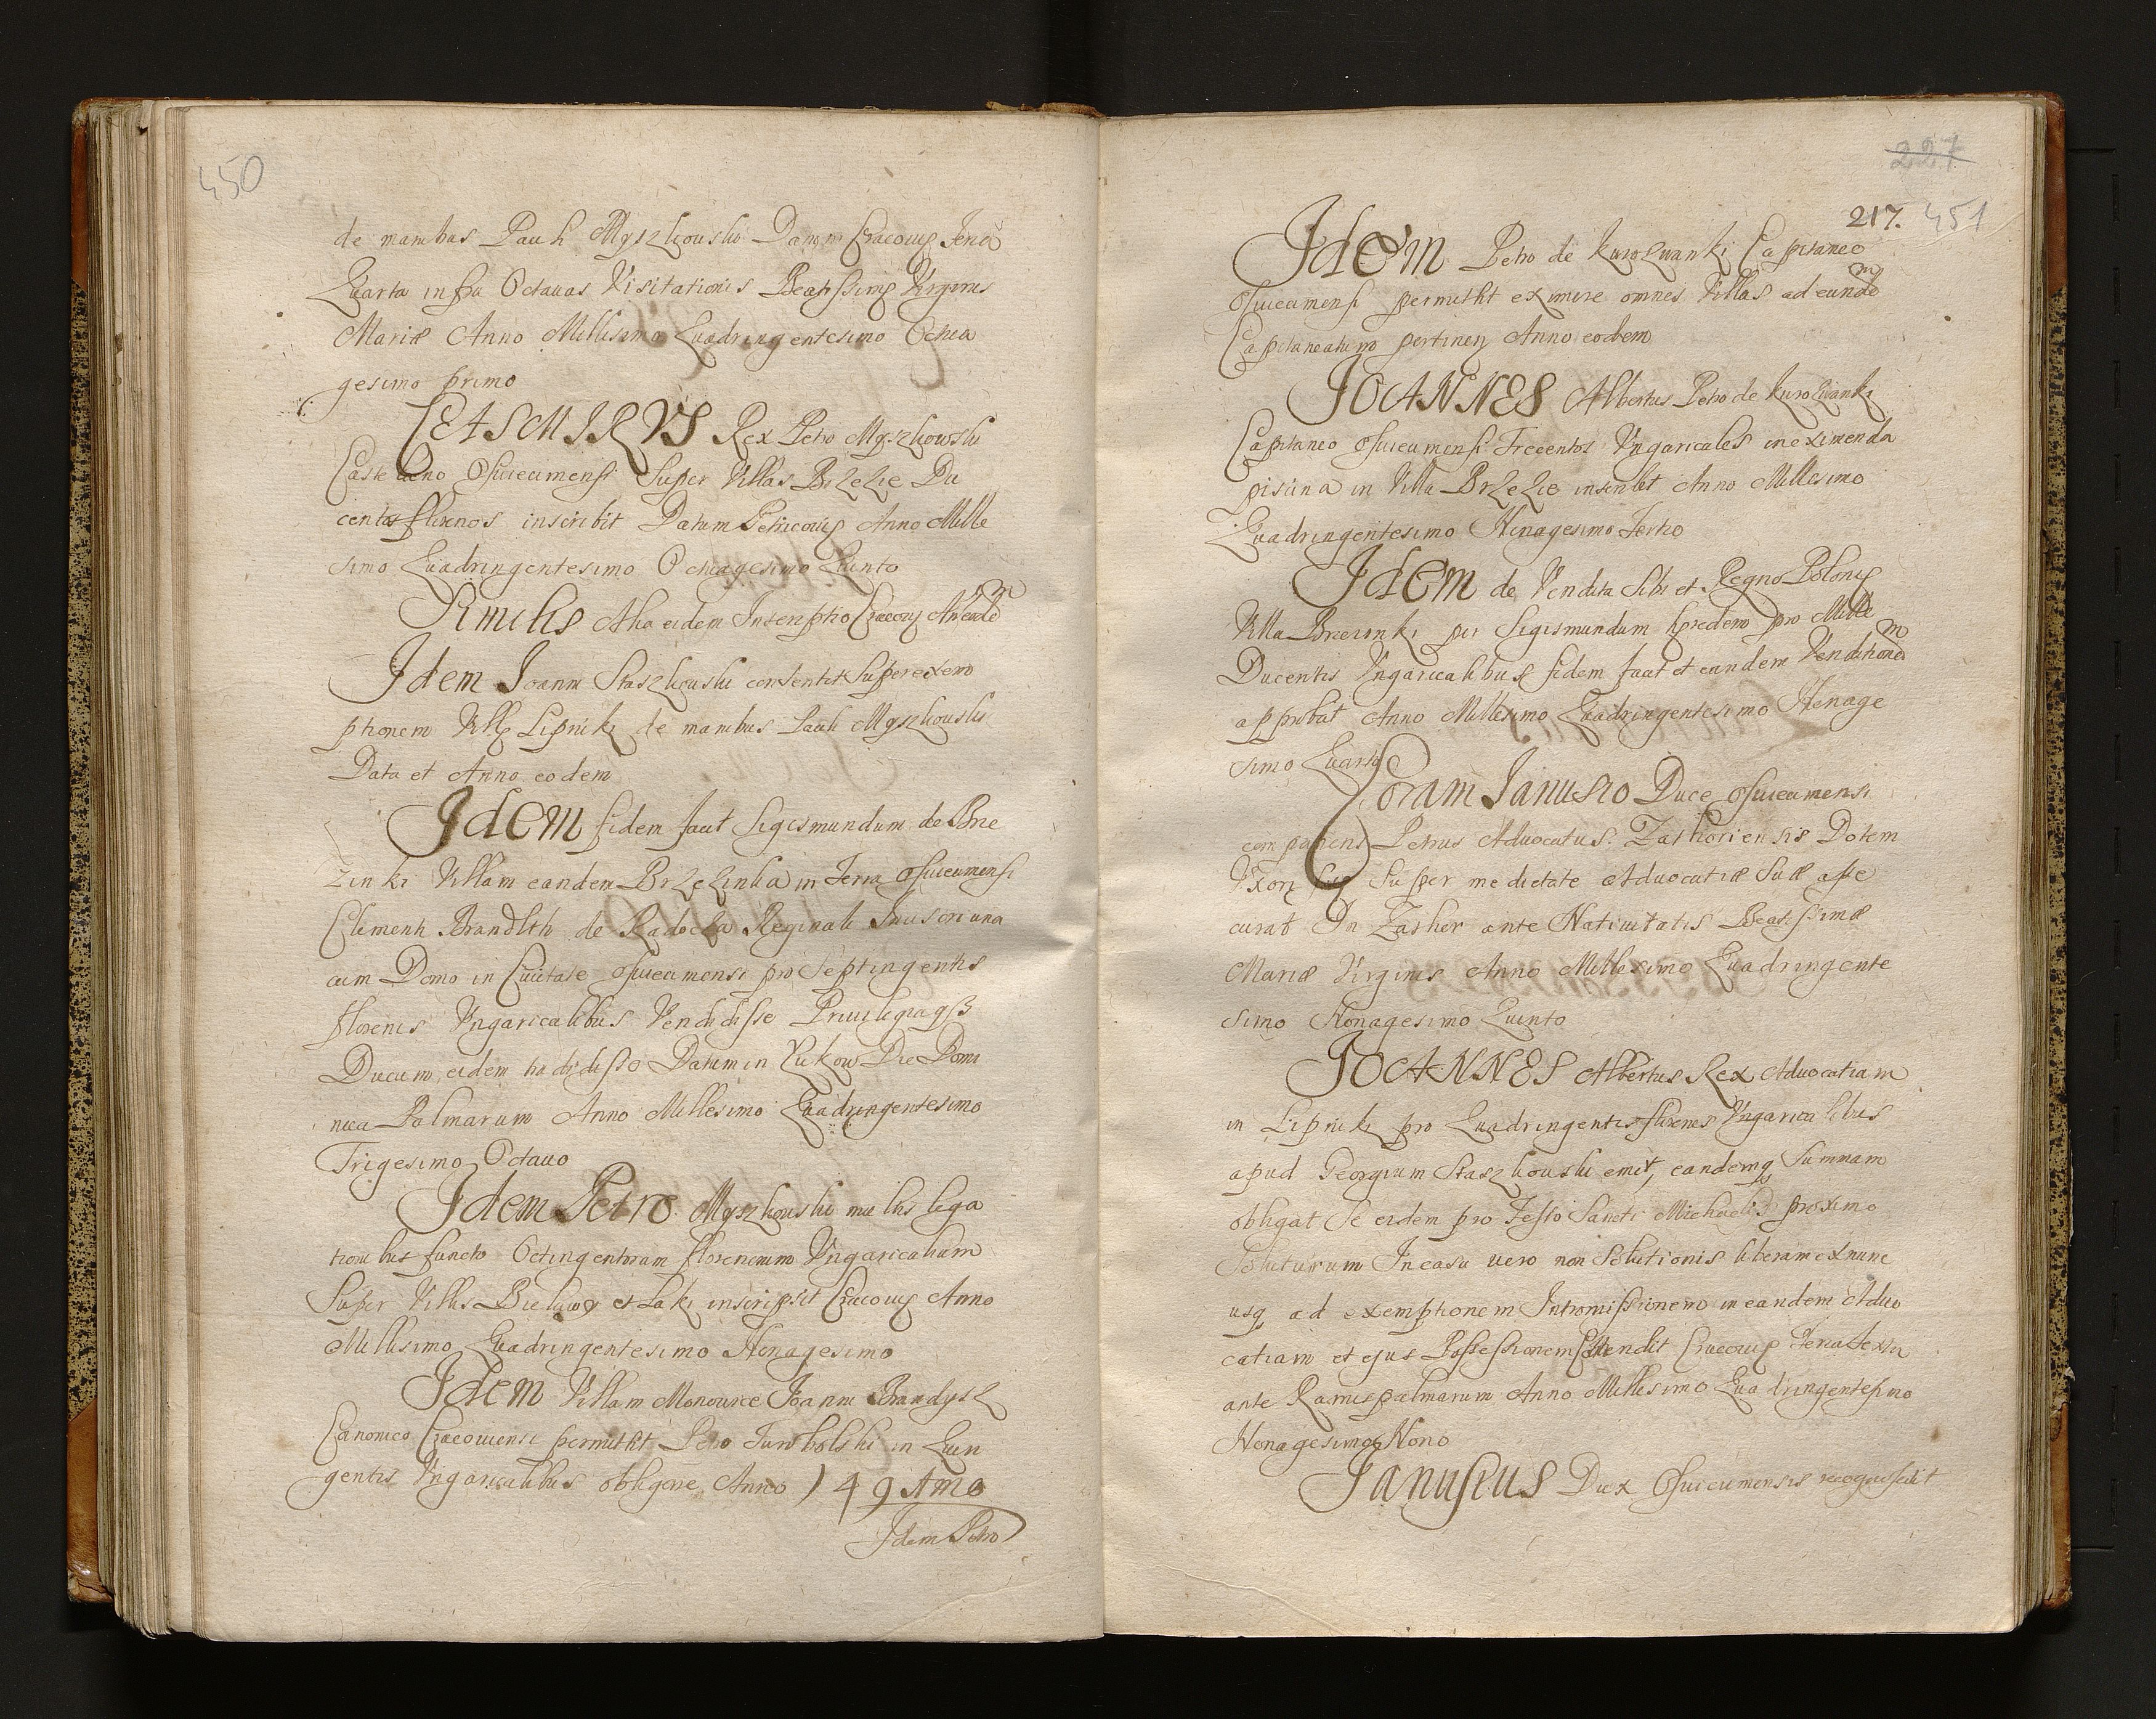 450
de manibus Pauli Myszkowski Datum Cracoviæ Feria
Quarta infra Octauas Visitationis Beatissimæ Virginis
Mariæ Anno Millesimo Quadringentesimo Octua
gesimo primo
CASIMIRVS Rex Petro Myszkowski
Castellano Osuiecimensi Super Villas Brzezie Du
centos florenos inscribit Datum Petricouiæ Anno Mille
simo Quadringentesimo Octuagesimo Quinto
Similis Alia eidem Inscriptio Cracouiæ An eodē
Idem Joanni Staszkouski consentit Super exem
ptionem Villæ Lipniki de manibus Pauli Myszkouski
Data et Anno eodem
Idem fidem facit Sigismundum de Brze
zinki Villam eandem Brzezinka in Terra Osuiecimensi
Clementi Brandlth de Radocza Reginali una
cum Domo in Ciuitate Osuiecimensi pro Septingentis
florenis Vngaricalibus Vendidisse Priuilegiaqß
Ducum, eidem tradidisse Datum in Die Domi
nica Palmarum Anno Millesimo Quadringentesimo
Trigesimo Octauo
Idem Petro Myszkouski multis lega
tionibus functo Octingentorum florenorum Vngaricalium
Super Villis Bielany et Laki inscripsit Cracouiæ Anno
Millesimo Quadringentesimo Nonagesimo
Idem Villam Monowice Joanni Brandysz
Canonico Cracouiensi permittit Petro in Quin
gentis Vngaricalibus obligare Anno 149 Amo
Idem Petro
227
217. 451
Idem Petro de Kurozwanki Capitaneo
Osuiecimensi permittit eximere omnes Villas ad eundē
Capitaneatum pertinen Anno eodem
JOANNES Albertus Petro de Kurozwanki
Capitaneo Osuiecimensi Trecentos Vngaricales in eximenda
piscina in Villa Brzezie inscribit Anno Millesimo
Quadringentesimo Nonagesimo Tertio
Idem de Vendita Sibi et Regno Poloniæ
Villa Brzezinki per Sigismundum hæredem pro Mille
Ducentis Vngaricalibus fidem facit et eandem Venditionē
approbat Anno Millesimo Quadringentesimo Nonage
simo Quarto
Coram Janusio Duce Osuiecimensi
comparens Petrus Aduocatus Zathoriensis Dotem
Vxori suæ Super medietate Aduocatiæ Suæ asse
curat In Zathor ante Natiuitatis Beatissimæ
Mariæ Virginis Anno Millesimo Quadringente
simo Nonagesimo Quinto
JOANNES Albertus Rex Aduocatiam
in Lipniki pro Quadringentis florenis Vngaricalibus
apud Georgium Staszkouski emit, eandemq Summam
obligat Se eidem pro Festo Sancti Michaelis proximo
Soluturum In casu vero non Solutionis liberam ex nunc
usq ad exemptionem Intromissionem in eandem Aduo
catiam et ejus Possessionem Cracouiæ Feria Sexta
ante Ramispalmarum Anno Millesimo Quadringentesimo
Nonagesimo Nono
Janusius Dux Osuiecimensis recognoscit